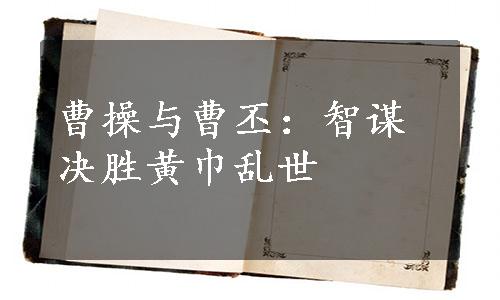 曹操与曹丕：智谋
决胜黄巾乱世